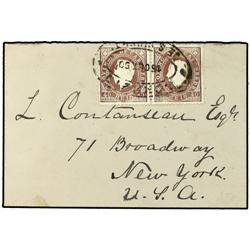 40 40
L. Contanseau Esqr
71 Broadway
New York.
U.S.A.